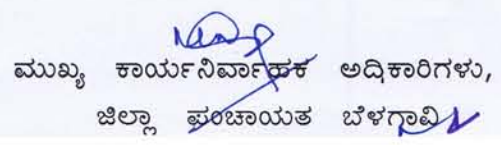 ಮುಖ್ಯ ಕಾರ್ಯನಿರ್ವಾಹಕ ಅಧಿಕಾರಿಗಳು,
ಜಿಲ್ಲಾ ಪಂಚಾಯತ ಬೆಳಗಾವಿ